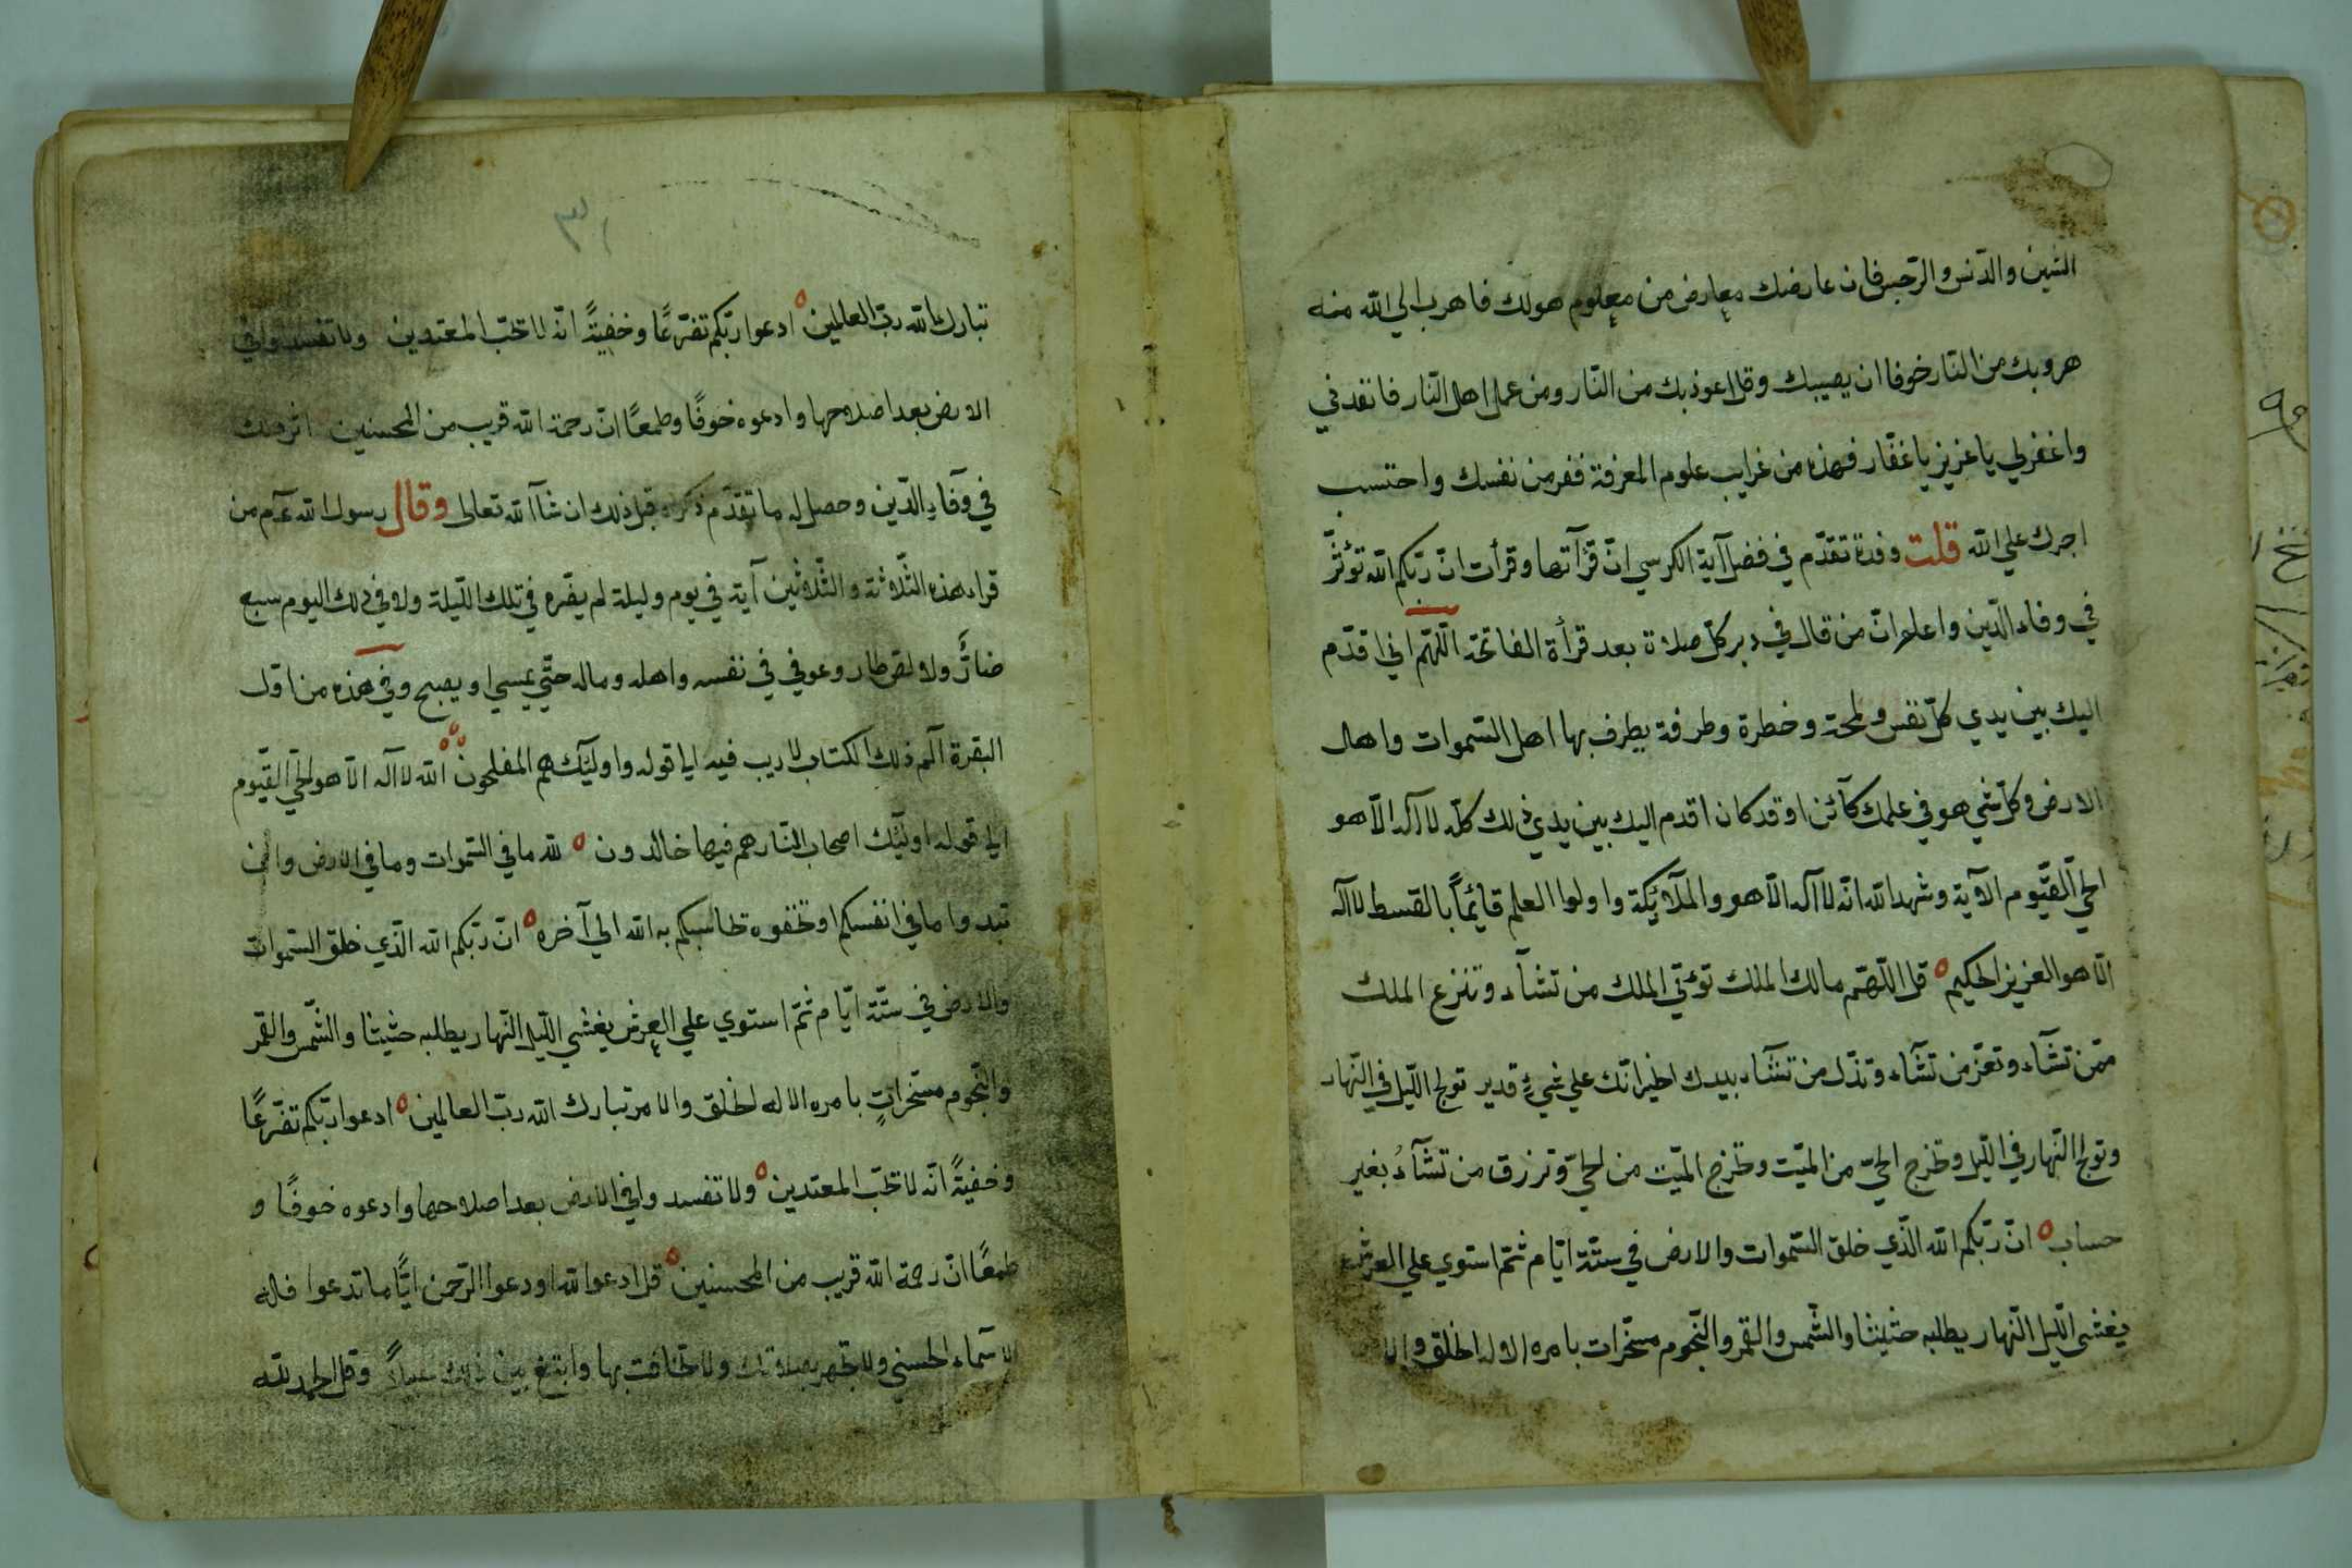 الشين والدنس والرجس فان عارضك معارض من معلوم هولك فاهرب الي الله منه
هروبك من النار خوفا ان يصيبك وقل اعوذ بك من النار ومن عمل اهل النار فانقدني
واغفرلي يا عزيز يا غفار فهذه من غرايب علوم المعرفة ففر من نفسك واحتسب
اجرك علي الله قلت وقدة تقدّم في فضل آية الكرسي انّ قرآتها وقرأت انّ ربّكم الله تؤثّر
في وفاء الدّين واعلم انّ من قال في دبر كلّ صلاة بعد قرأة الفاتحة اللّهمّ اني اقدّم
اليك بين يدي كلّ نفس ولمحة وخطرة وطرفة يطرف بها اهل السّموات واهل
الارض وكلّ شي هو في علمك كآئن او قد كان اقدم اليك بين يدي ذلك كلّه لا آله الاّ هو
الحيّ القيّوم الآية وشهد الله انّه لا آله الاّ هو والملآئكة واولوا العلم قائماً بالقسط لا آله
الاّ هو العزيز الحكيم ه قل اللّهمّ مالك الملك تؤتي الملك من تشآء وتنزع الملك
ممّن تشآء وتعزّ من تشآء وتذلّ من تشآء بيدك الخير انّك علي شيءٍ قدير تولج اللّيل في النّهار
وتولج النّهار في اللّيل وتخرج الحيّ من الميّت وتخرج الميّت من الحيّ وترزق من تشآءُ بغير
حساب ه انّ ربّكم الله الّذي خلق السّموات والارض في ستّة ايّام ثمّ استوي علي العرش
يغشي اللّيل النّهار يطلبه حثيثا والشّمس والقمر والنّجوم مسخّرات بامره الا له الخلق والا
٣١
تبارك الله ربّ العالمين ه ادعوا ربّكم تضرّعًا وخفيةً انّه لا تحبّ المعتدين ولا تفسدوا في
الارض بعد اصلاحها وادعوه خوفًا وطمعًا انّ رحمة الله قريب من المحسنين اثر ذلك
في وفآءِ الدّين وحصل له ما تقدّم ذكره قبل ذلك ان شآ الله تعالي وقال رسول الله عم من
قراء هذه الثّلاثة والثّلاثين آية في يوم وليلة لم يضره في تلك اللّيلة ولا في ذلك اليوم سبع
ضارٌّ ولا لصّ طار وعوفي في نفسه واهله وماله حتّي يمسي او يصبح وفي هذه من اوّل
البقرة آلم ذلك الكتاب لا ريب فيه الي قوله واوليّك هم المفلحون ه الله لا آله الاّ هو الحيّ القيّوم
الي قوله اوليّك اصحاب النّار هم فيها خالدون ه لله ما في السّموات وما في الارض وان
تبدوا ما في انفسكم او تخفوه تحاسبكم به الله الي آخره ه انّ ربّكم الله الّذي خلق السّموات
والارض في ستّة ايّام ثمّ استوي علي العرش يغشي اللّيل النّهار يطلبه حثيثا والشّمس والقمر
والنّجوم مسخّراتٍ بامره الا له الخلق والامر تبارك الله ربّ العالمين ه ادعوا ربّكم تضرّعًا
وخفيةً انّه لا تحبّ المعتدين ه ولا تفسدوا في الارض بعد اصلاحها وادعوه خوفًا و
طمعًا انّ رحمة الله قريب من المحسنين ه قل ادعوا الله او دعوا الرّحمن ايًّا ما تدعوا فله
الاسمآء الحسني ولا تجهر بصلاتك ولا تخافت بها وابتغ بين ذلك سبيلاً وقل الحمد لله